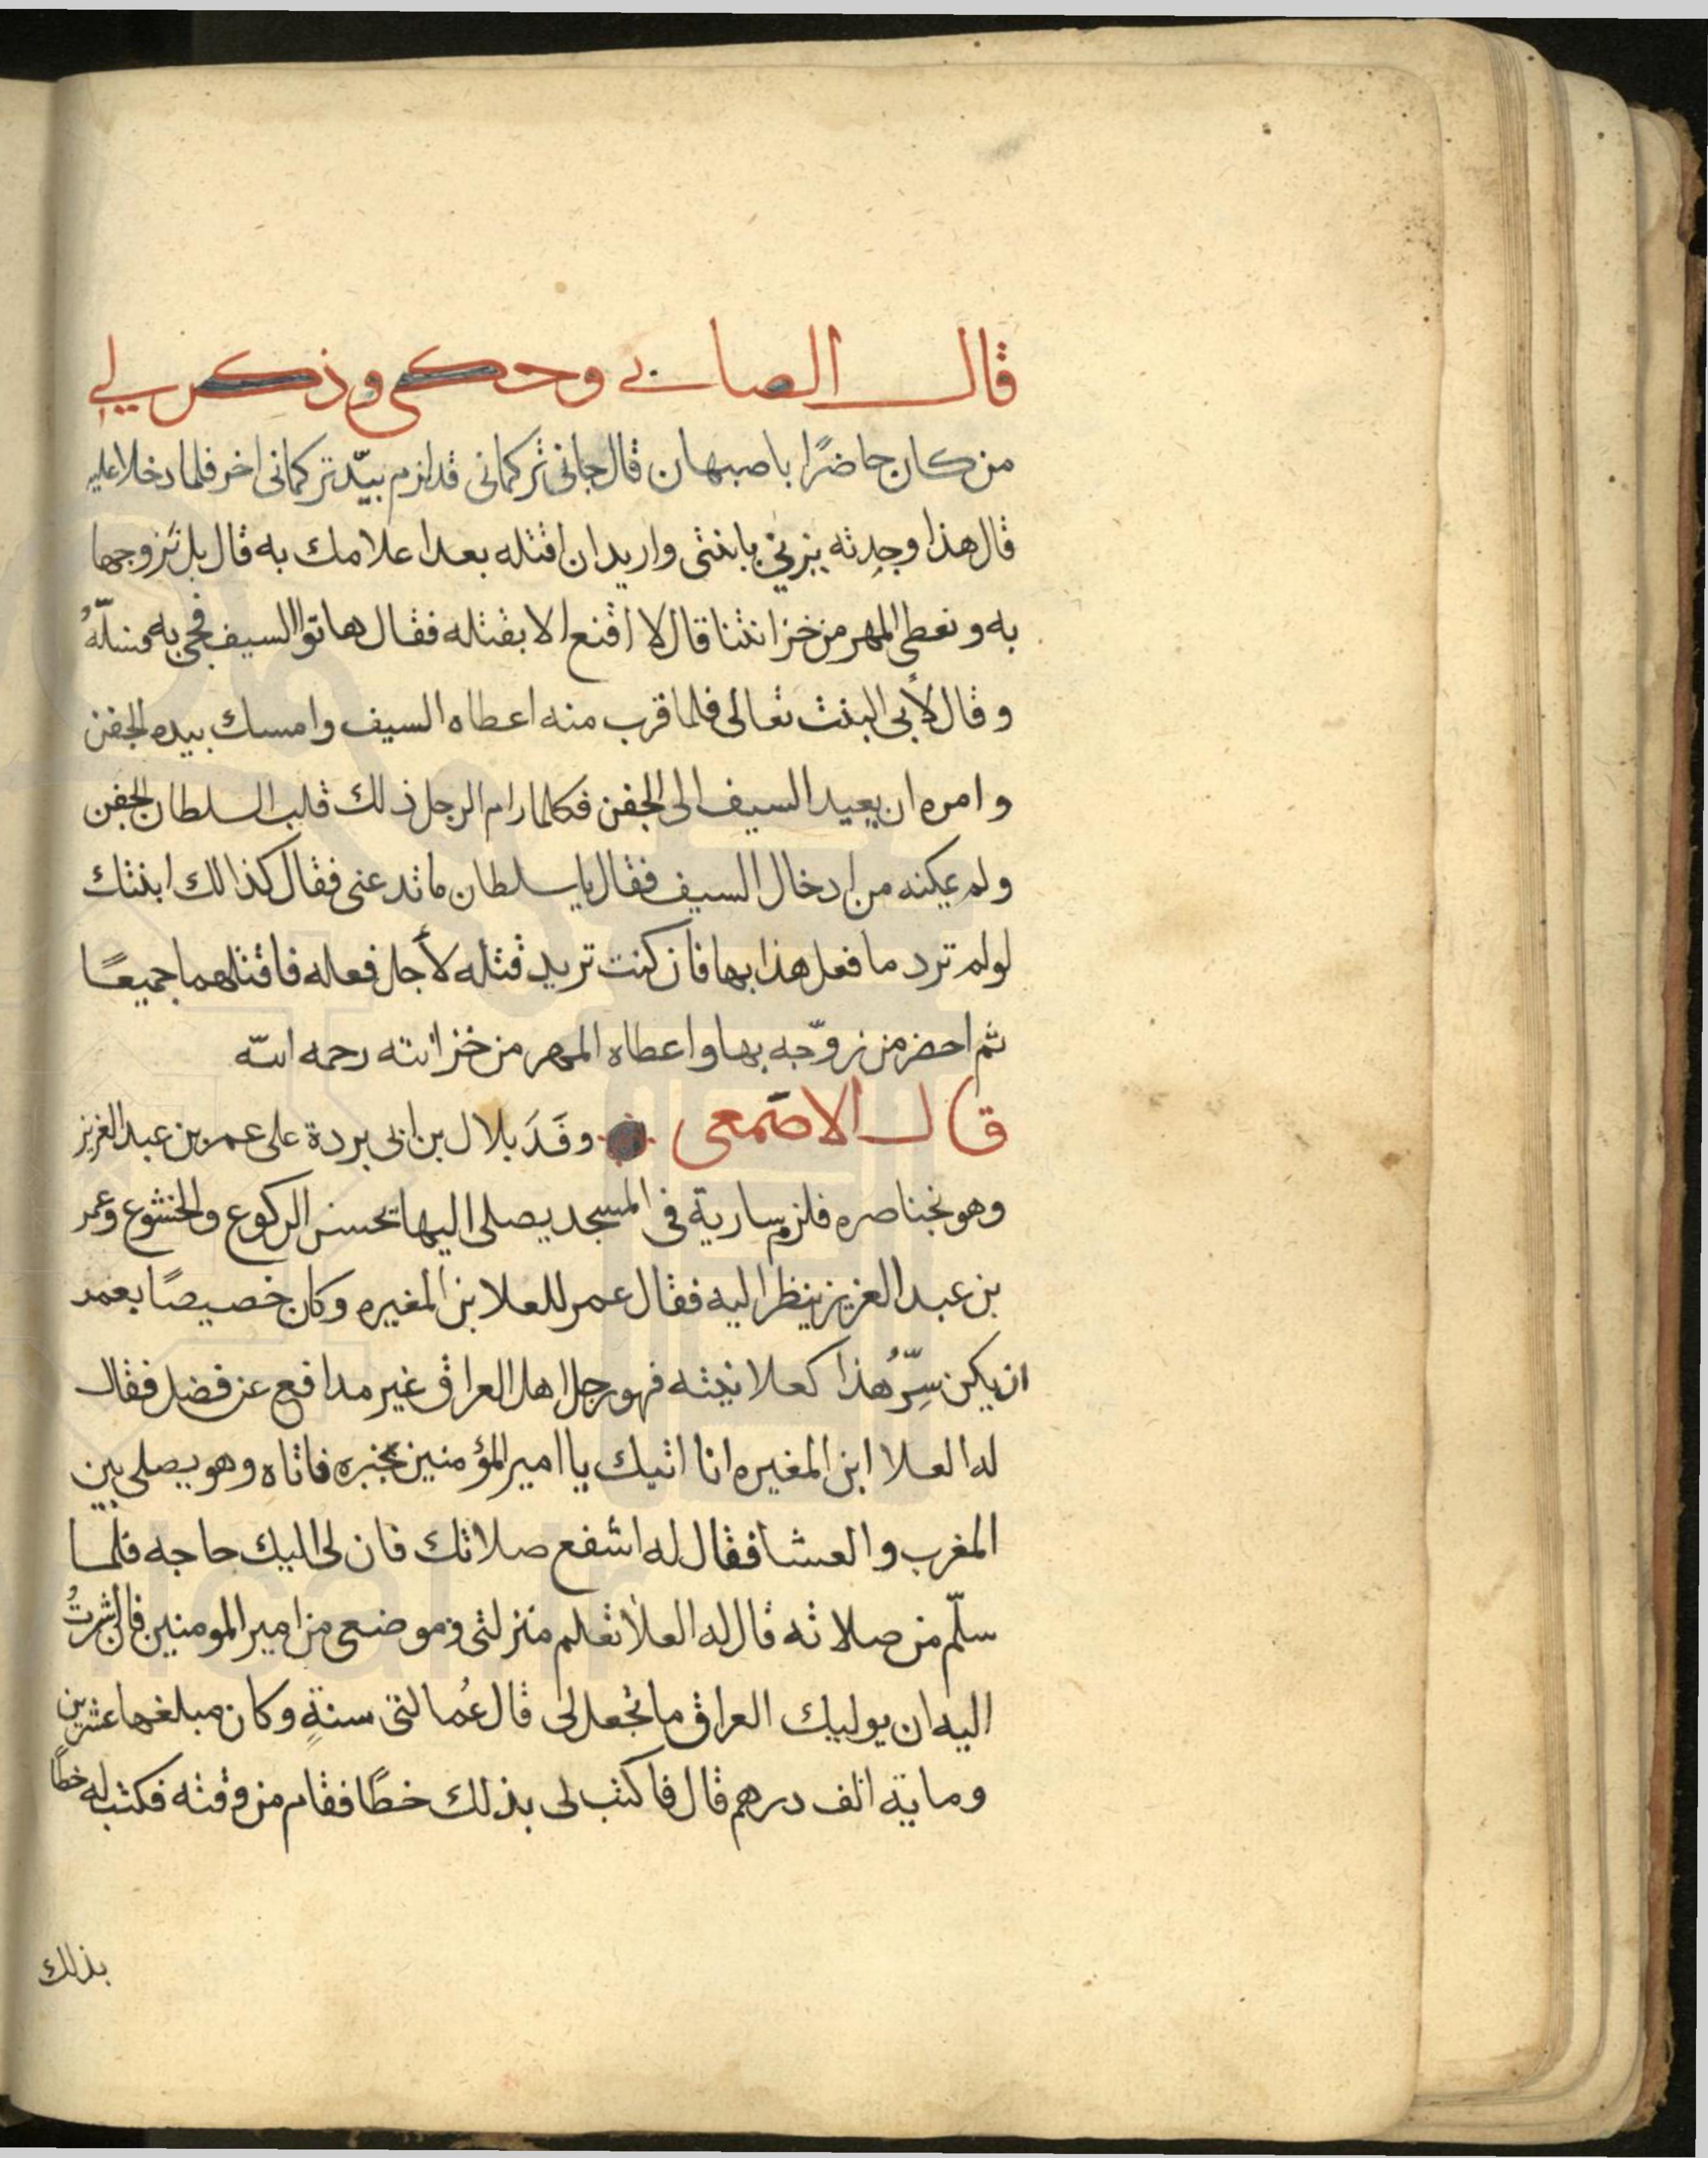 قال الصابي وحكي وذكر لي
من كان حاضرًا باصبهان قال جاني تركماني قد لزم بيد تركماني اخر فلما دخلا عليه
قال هذا وجدته يزني بابنتي واريد ان اقتله بعد اعلامك به قال بل تزوجها
به ونعطي المهر من خزانتنا قال لا اقنع الا بقتله فقال هاتوا السيف فجي به فسلّهُ
وقال لأبي البنت تعالى فلما قرب منه اعطاه السيف وامسك بيده الجفن
وامره ان يعيد السيف الى الجفن فكلما رام الرجل ذلك قلب السلطان الجفن
ولم يمكنه من ادخال السيف فقال يا سلطان ما تدعني فقال كذالك ابنتك
لو لم ترد ما فعل هذا بها فان كنت تريد قتله لأجل فعله فاقتلهما جميعًا
ثم احضر من زوّجه بها واعطاه المهر من خزانته رحمه الله
قال الاصمعي وفَدَ بلال بن ابي بردة على عمر بن عبد العزيز
وهو بخناصره فلزم سارية في المسجد يصلي اليها يحسن الركوع والخشوع وعمر
بن عبد العزيز ينظر اليه فقال عمر للعلا بن المغيره وكان خصيصًا بعمر
ان يكن سِرُّ هذا كعلانيته فهو رجل اهل العراق غير مدافع عن فضل فقال
له العلا ابن المغيره انا اتيك يا امير المؤمنين بخبره فاتاه وهو يصلي بين
المغرب والعشا فقال له اشفع صلاتك فان لي اليك حاجه فلما
سلّم من صلاته قال له العلا تعلم منزلتي وموضعي من امير المومنين فان اشرتُ
اليه ان يوليك العراق ما تجعل لي قال عُمالتي سنةٍ وكان مبلغها عشرين
وماية الف درهم قال فاكتب لي بذلك خطًا فقام من وقته فكتب له خطًا
بذلك